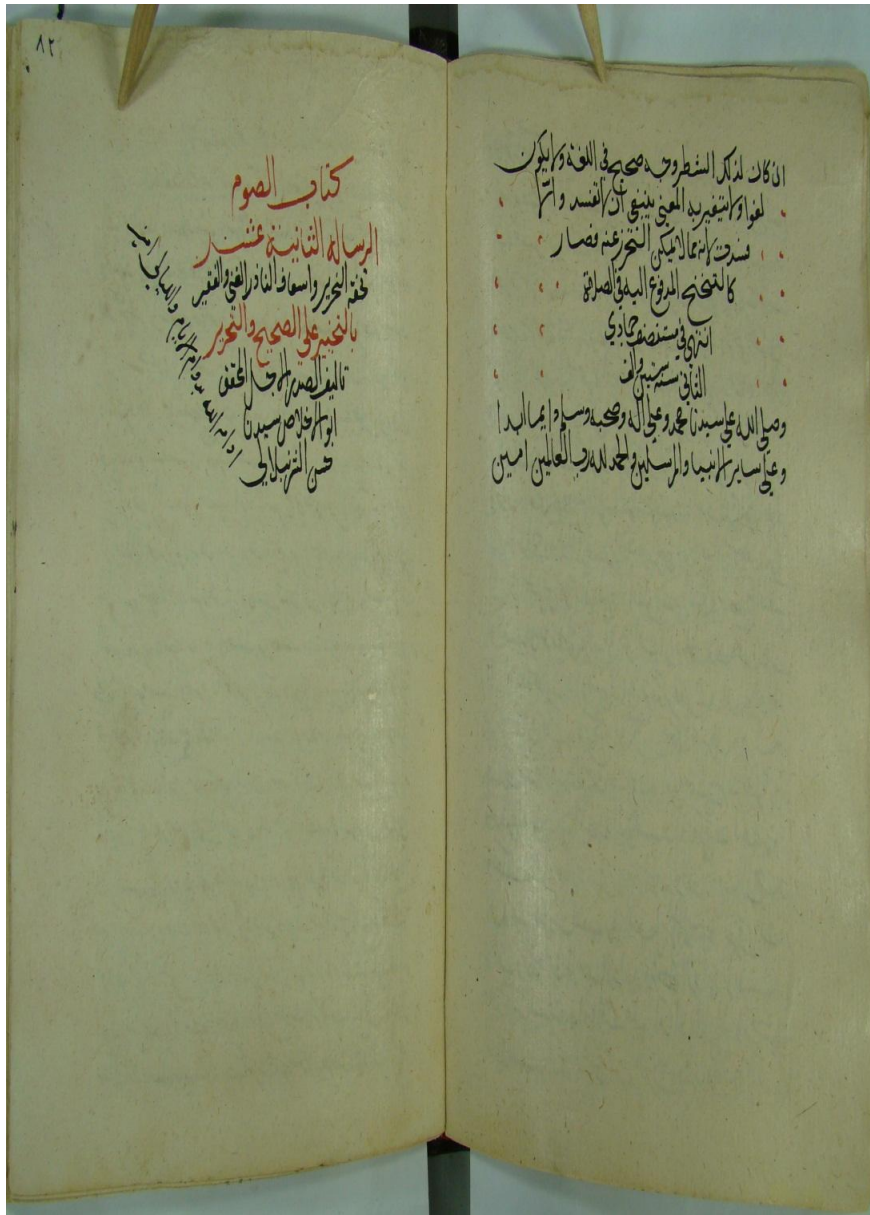 ان كان لذلك الشطر وجه صحيح في اللغة ولا يكون
لغوا ولا يتغير به المعنى ينبغي ان لا تفسد والا
فسدت لانه مما لا يمكن التحرز عنه فصار
كالتنحنح المدفوع اليه في الصلاة
انتهى في منتصف جمادي
الثاني سنة ستين والف
وصلى الله على سيدنا محمد وعلى اله وصحبه وسلم دايما ابدا
وعلى ساير الانبيا والمرسلين والحمد لله رب العالمين امين
٨٢
كتاب الصوم
الرسالة الثانية عشر
تحفة التحرير واسعاف الناذر الغني والفقير
بالتخيير على الصحيح والتحرير
تاليف الصدر الاجل المحقق
ابو الاخلاص سيدنا
حسن الشرنبلالي
الايام والليالي امين